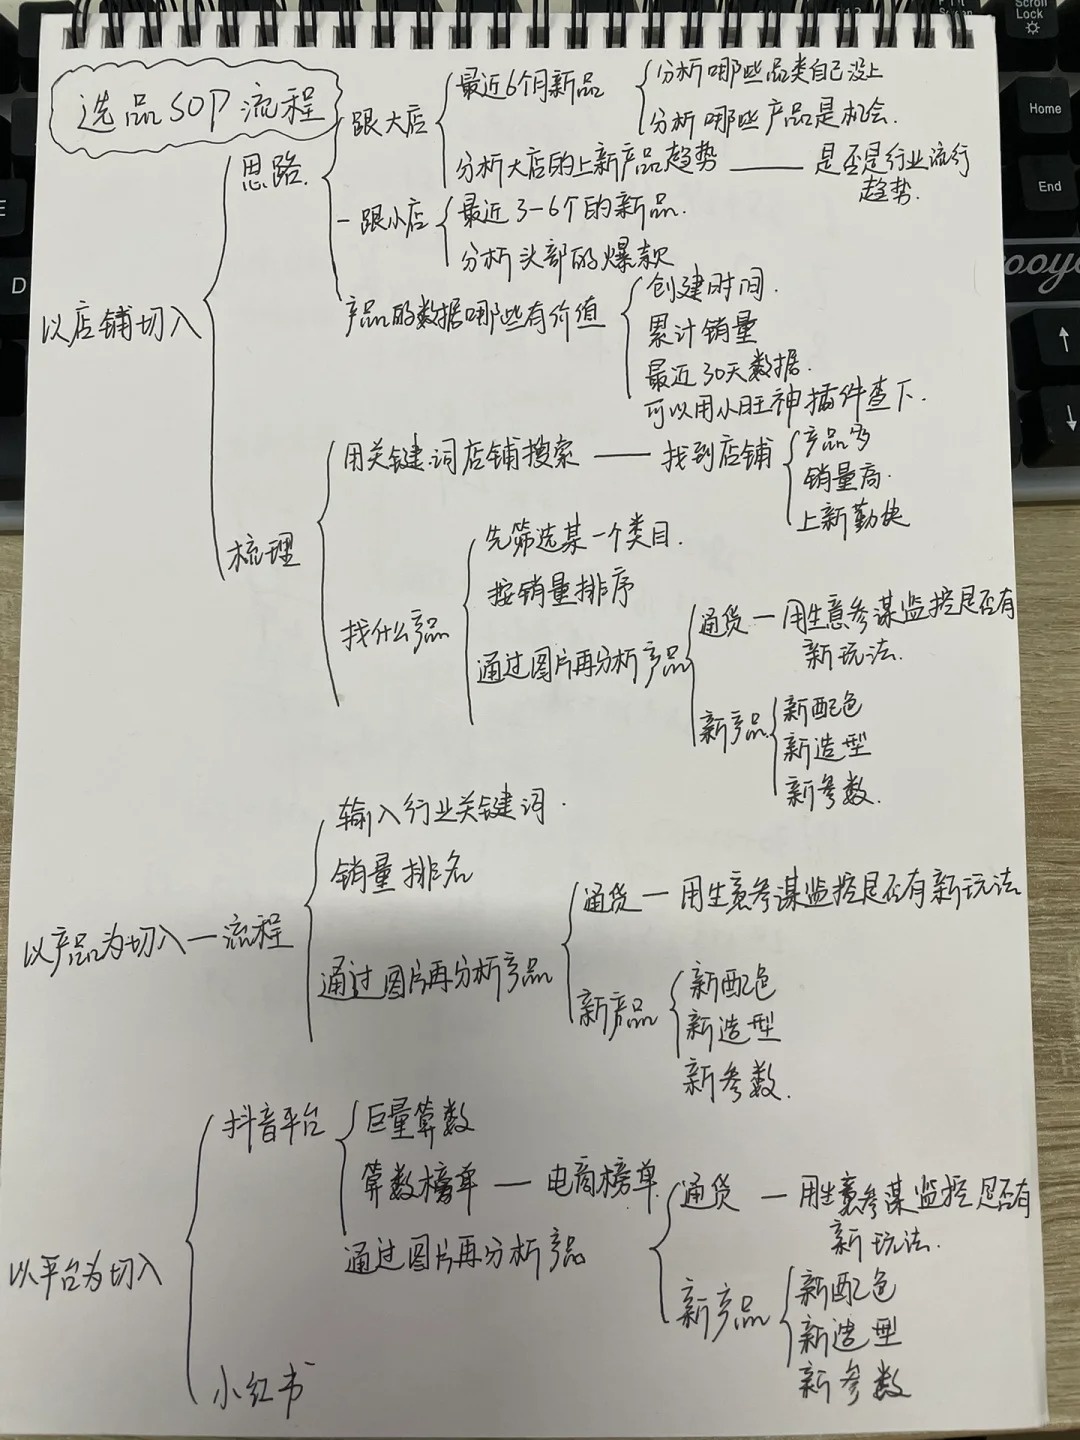 选品SOP流程
以店铺切入
思路.
跟大店
最近6个月新品
分析哪些品类自己没上
分析哪些产品是机会.
分析大店的上新产品趋势 —— 是否是行业流行
趋势.
- 跟小店
最近3-6个的新品.
分析头部的爆款
产品的数据哪些有价值
创建时间.
累计销量
最近30天数据.
可以用小旺神插件查下.
梳理
用关键词店铺搜索 —— 找到店铺
产品多
销量高.
上新勤快
找什么产品
先筛选某一个类目.
按销量排序
通过图片再分析产品
通货 — 用生意参谋监控是否有
新玩法.
新产品
新配色
新造型
新参数.
以产品为切入 — 流程
输入行业关键词.
销量排名
通过图片再分析产品
通货 — 用生意参谋监控是否有新玩法
新产品
新配色
新造型
新参数.
以平台为切入
抖音平台
巨量算数
算数榜单 — 电商榜单.
通过图片再分析产品
通货 — 用生意参谋监控是否有
新玩法.
新产品
新配色
新造型
新参数
小红书
Print
Screen
Scroll
Lock
Home
End
E
D